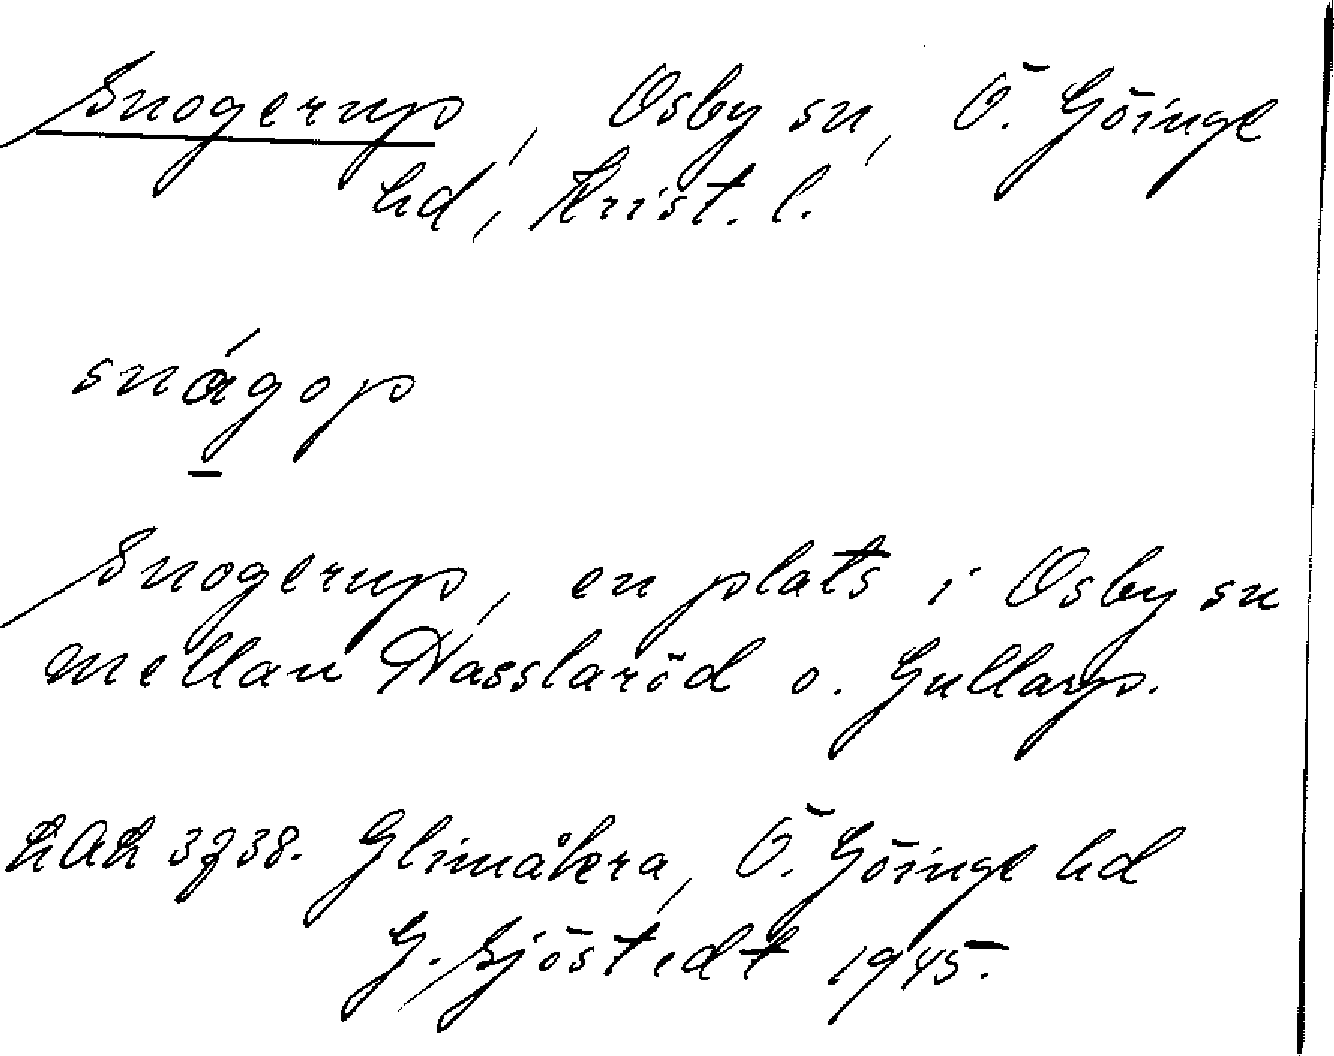 Snogerup, Osby sn, Ö. Göinge
hd, Krist. l.
snágop
Snogerup, en plats i Osby sn
mellan Hasslaröd o. Gullarp.
LAL 3738. Glimåkra, Ö. Göinge hd
G. Sjöstedt 1945.